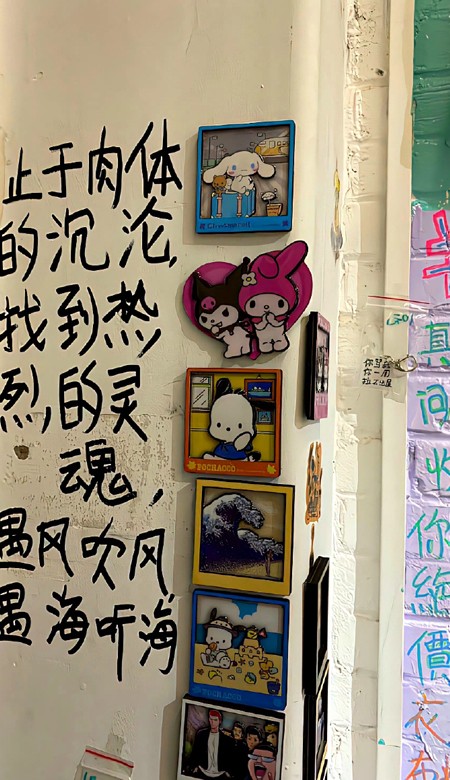 止于肉体
的沉沦,
找到热
烈,的灵
魂,
遇风吹风
遇海听海
Cinnamoroll
POCHACCO
POCHACCO
真
间
收
你
给
價
衣